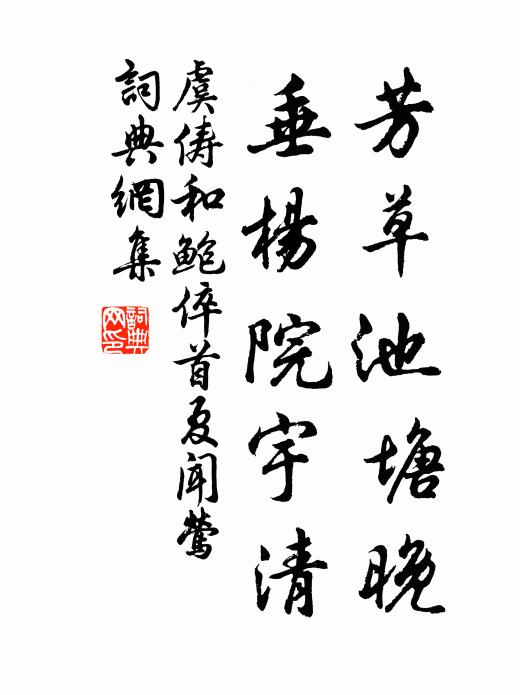 芳草池塘晚
垂楊院宇清
虞儔和鮑倅首夏聞鶯
詞典網集
詞典
网印